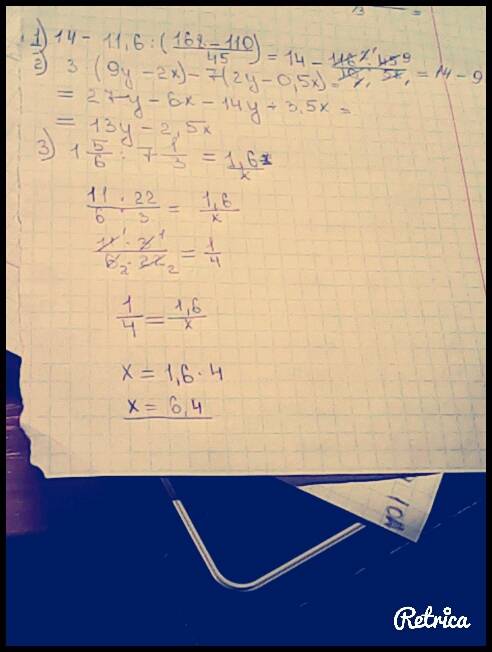 1) 14 - 11,6 : (162 - 110 / 45) = 14 - 116 · 45 / 10 · 58 = 14 - 9
2) 3 (9y - 2x) - 7(2y - 0,5x) =
= 27y - 6x - 14y + 3,5x =
= 13y - 2,5x
3) 1 5/6 : 7 1/3 = 1,6 / x
11/6 : 22/3 = 1,6/x
11 · 3 / 6 · 22 = 1/4
1/4 = 1,6/x
x = 1,6 · 4
x = 6,4
Retrica